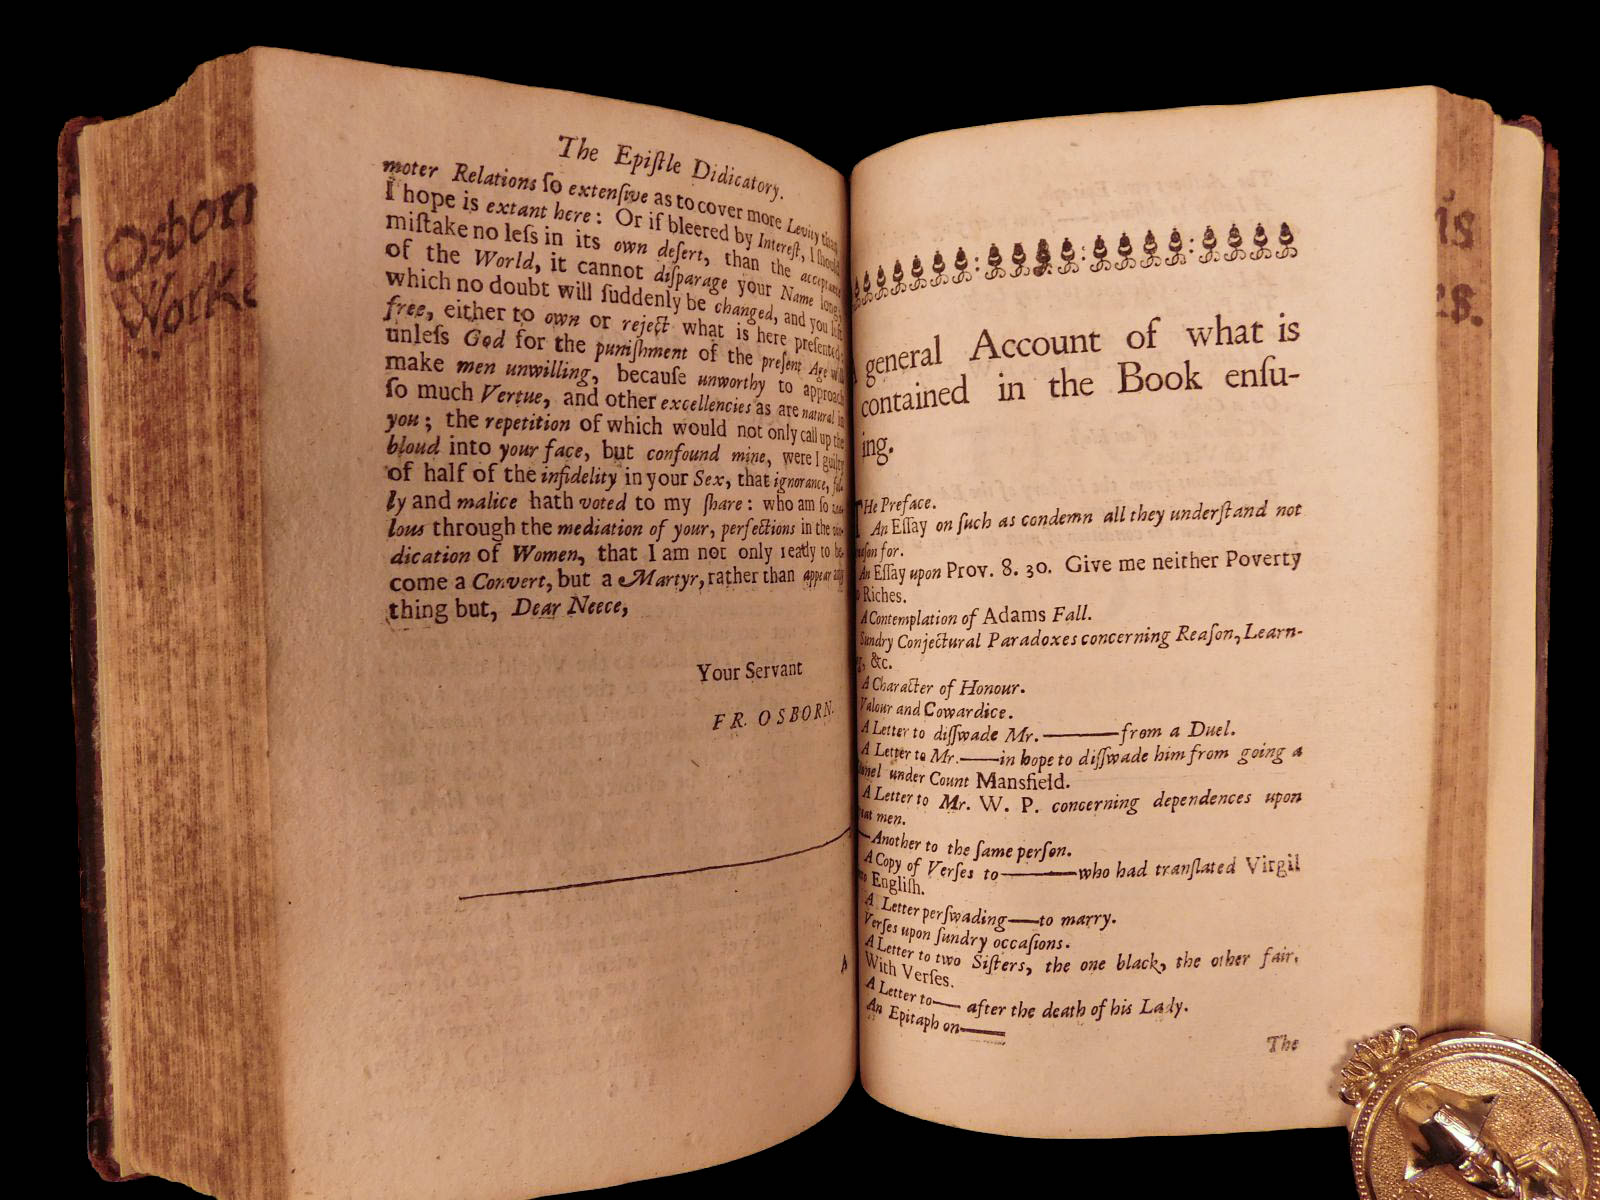 Osborn
Worke
The Epiſtle Didicatory.
moter Relations ſo extenſive as to cover more Levity than
I hope is extant here: Or if bleered by Intereſt, I ſhould
miſtake no leſs in its own deſert, than the acceptance
of the World, it cannot diſparage your Name long,
which no doubt will ſuddenly be changed, and you left
free, either to own or reject what is here preſented:
unleſs God for the puniſhment of the preſent Age will
make men unwilling, becauſe unworthy to approach
ſo much Vertue, and other excellencies as are natural in
you; the repetition of which would not only call up the
bloud into your face, but confound mine, were I guilty
of half of the infidelity in your Sex, that ignorance, fol-
ly and malice hath voted to my ſhare: who am ſo
lous through the mediation of your, perfections in the
dication of Women, that I am not only ready to be-
come a Convert, but a Martyr, rather than appear any
thing but, Dear Neece,
Your Servant
FR. OSBORN.
A
general Account of what is
contained in the Book enſu-
ing.
THe Preface.
An Eſſay on ſuch as condemn all they underſtand not
reaſon for.
An Eſſay upon Prov. 8. 30. Give me neither Poverty
Riches.
A Contemplation of Adams Fall.
Sundry Conjectural Paradoxes concerning Reaſon, Learn-
&c.
A Character of Honour.
Valour and Cowardice.
A Letter to diſſwade Mr. —— from a Duel.
A Letter to Mr. —— in hope to diſſwade him from going a
under Count Mansfield.
A Letter to Mr. W. P. concerning dependences upon
men.
—Another to the ſame perſon.
A Copy of Verſes to —— who had tranſlated Virgil
Engliſh.
A Letter perſwading —— to marry.
Verſes upon ſundry occaſions.
A Letter to two Siſters, the one black, the other fair.
With Verſes.
A Letter to —— after the death of his Lady.
An Epitaph on ——
The
is
es.